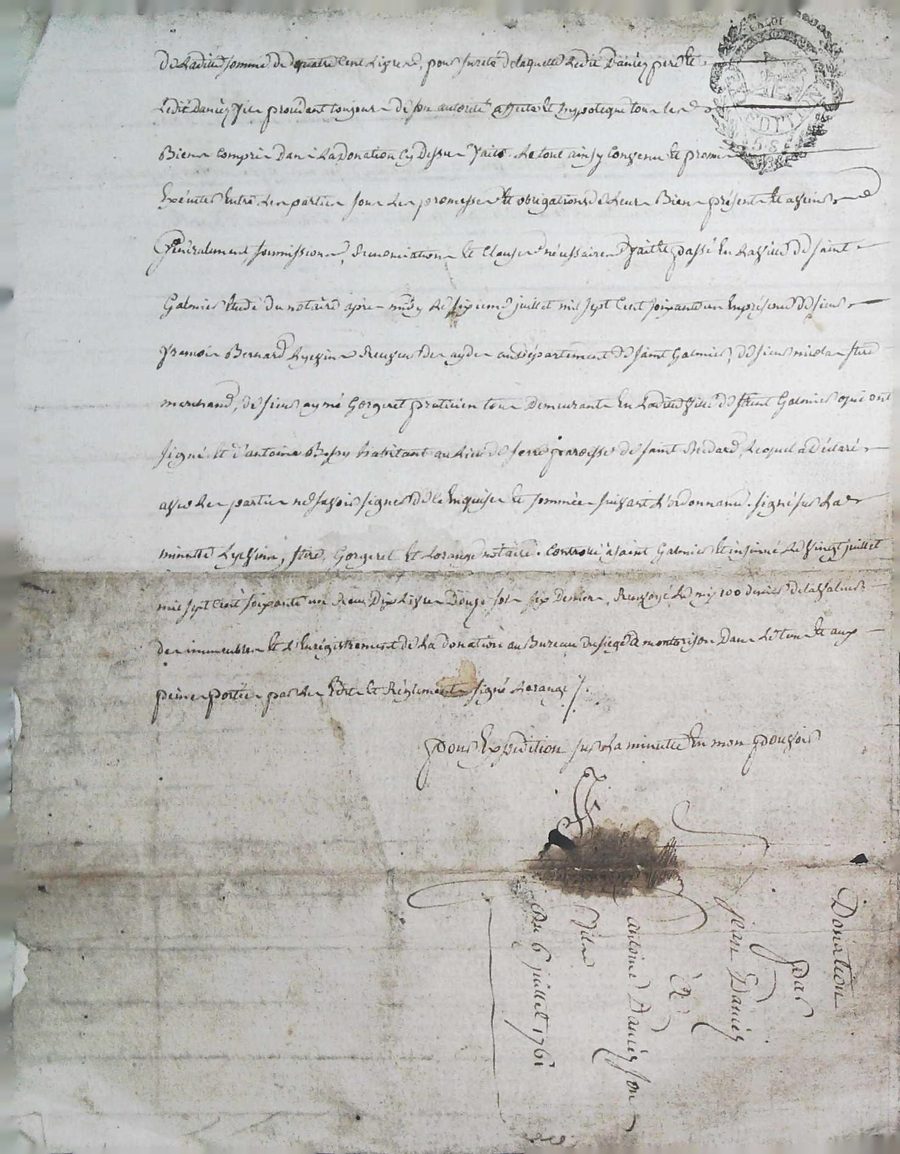 de Ladite somme de quatre cent Livres pour sureté de laquelle Ledit Daniez pere et
Ledit Daniez fils procédant toujours de son autorité affecte et hypoteque tous les
Biens compris dans La donation cy dessus faite. Le tout ainsy convenu et promis
Exécuter Entre Les parties sous Les promesses et obligations de Leurs Biens présents et avenir
Généralement soumissions, Renonciations et Clauses nécessaires fait et passé En La ville de saint
Galmier Etude du notaire après midy Le sixieme juillet mil sept Cent soixante un En présence de sieur
françois Bernard Receveur des aydes au département de saint Galmier, de sieur nicolas
marchand, de sieur aymé Gorgeret praticien tous Demeurants En Ladite ville de saint Galmier qui ont
signé et d'antoine habitant au Lieu de paroisse de saint Médard, Lequel a Déclaré
avec Les parties ne savoir signer de ce Enquises et sommées suivant L'ordonnance. signé sur La
minutte Gorgeret et Lorange notaire. Controllé à saint Galmier et insinué Le vingt juillet
mil sept Cent soixante un Reçu Dix Livres Douze sols six Deniers, Renvoyé Le my 100 denier de la valeur
des immeubles et L'Enregistrement de La donation au Bureau du siege de montbrison Dans Le tems et aux
peines portées par Les Edits et Réglements signé Lorange
pour Expédition sur La minutte En mon pouvoir
Donation
par
jean Daniez
à
antoine Daniez son
fils
Du 6 juillet 1761